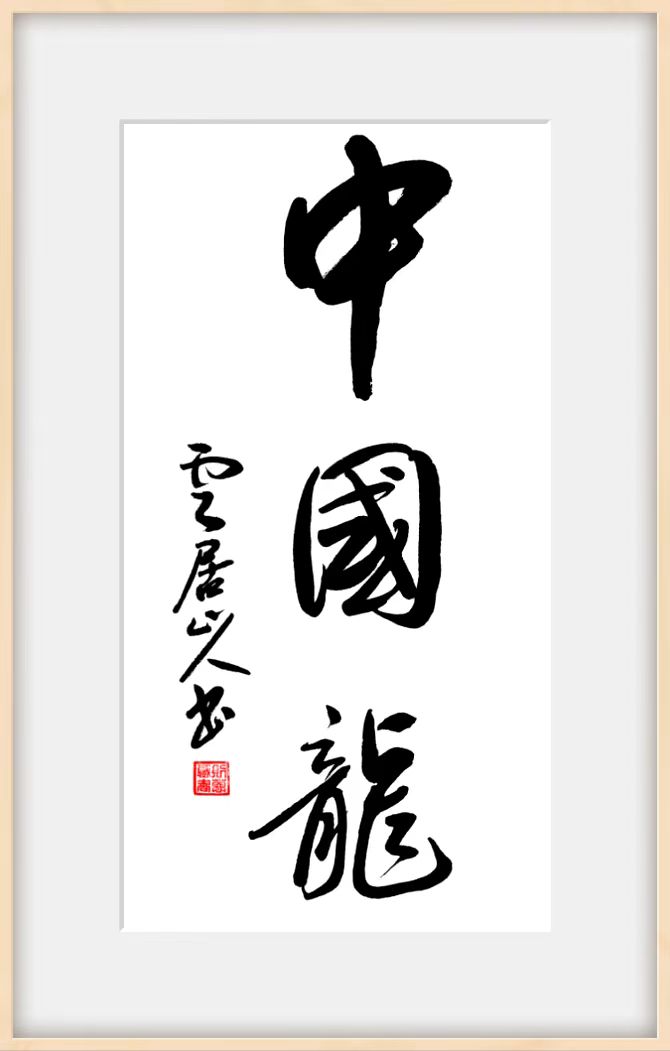 中國龍
雲居山人书